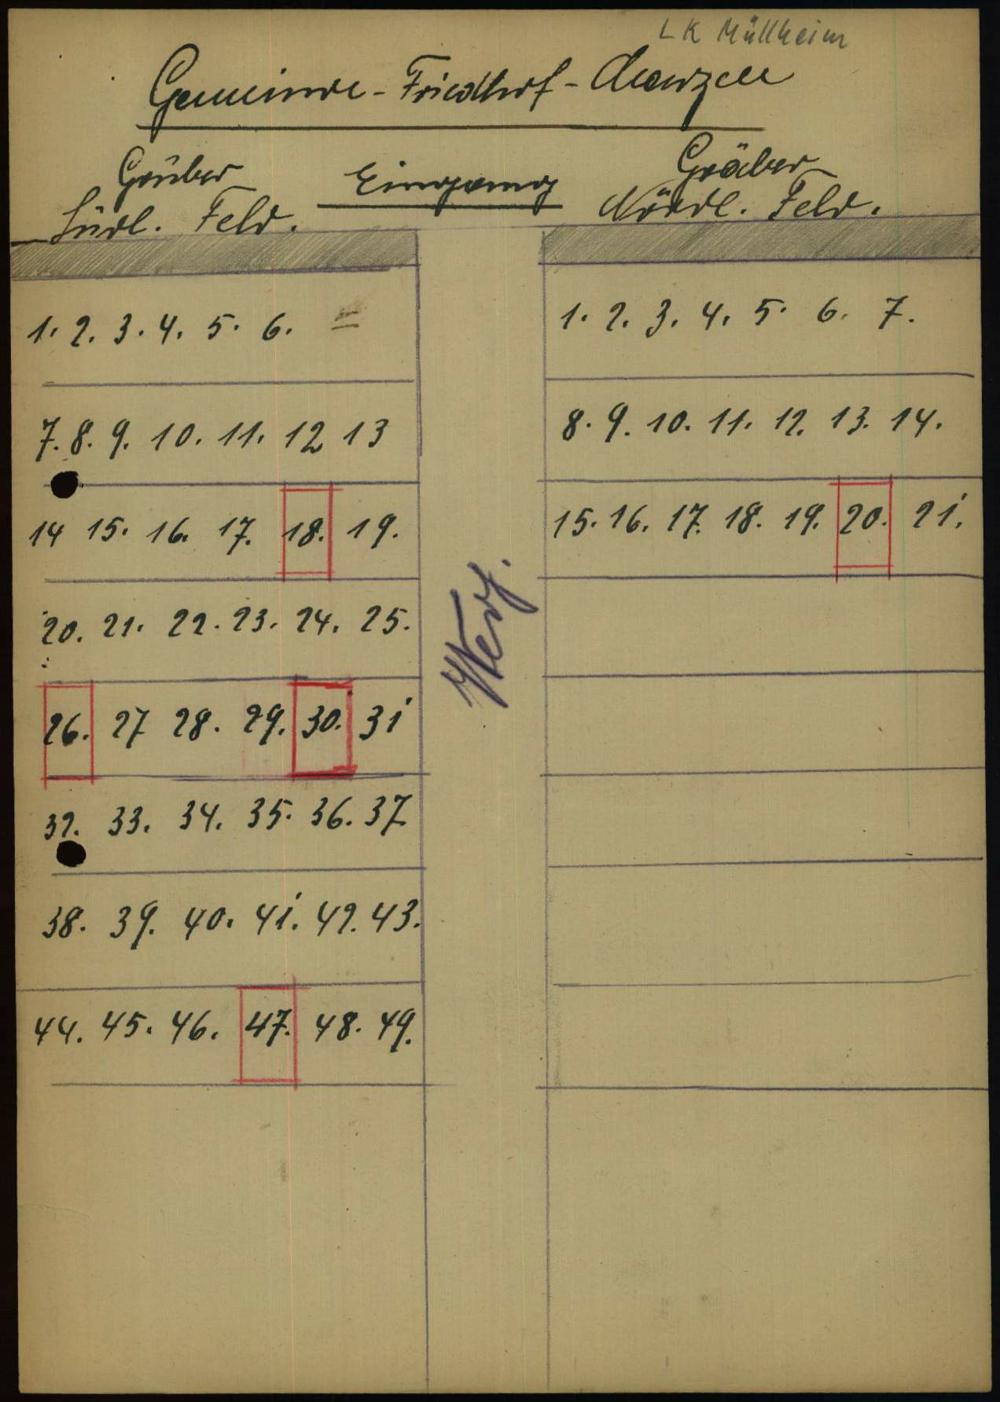 LK Müllheim
Gemeinde-Friedhof-
Gräber
Südl. Feld.
Eingang
Gräber
Nördl. Feld.
1. 2. 3. 4. 5. 6. =
7. 8. 9. 10. 11. 12 13
14 15. 16. 17. 18. 19.
20. 21. 22. 23. 24. 25.
26. 27 28. 29. 30. 31
32. 33. 34. 35. 36. 37
38. 39. 40. 41. 42. 43.
44. 45. 46. 47. 48. 49.
Weg.
1. 2. 3. 4. 5. 6. 7.
8. 9. 10. 11. 12. 13. 14.
15. 16. 17. 18. 19. 20. 21.